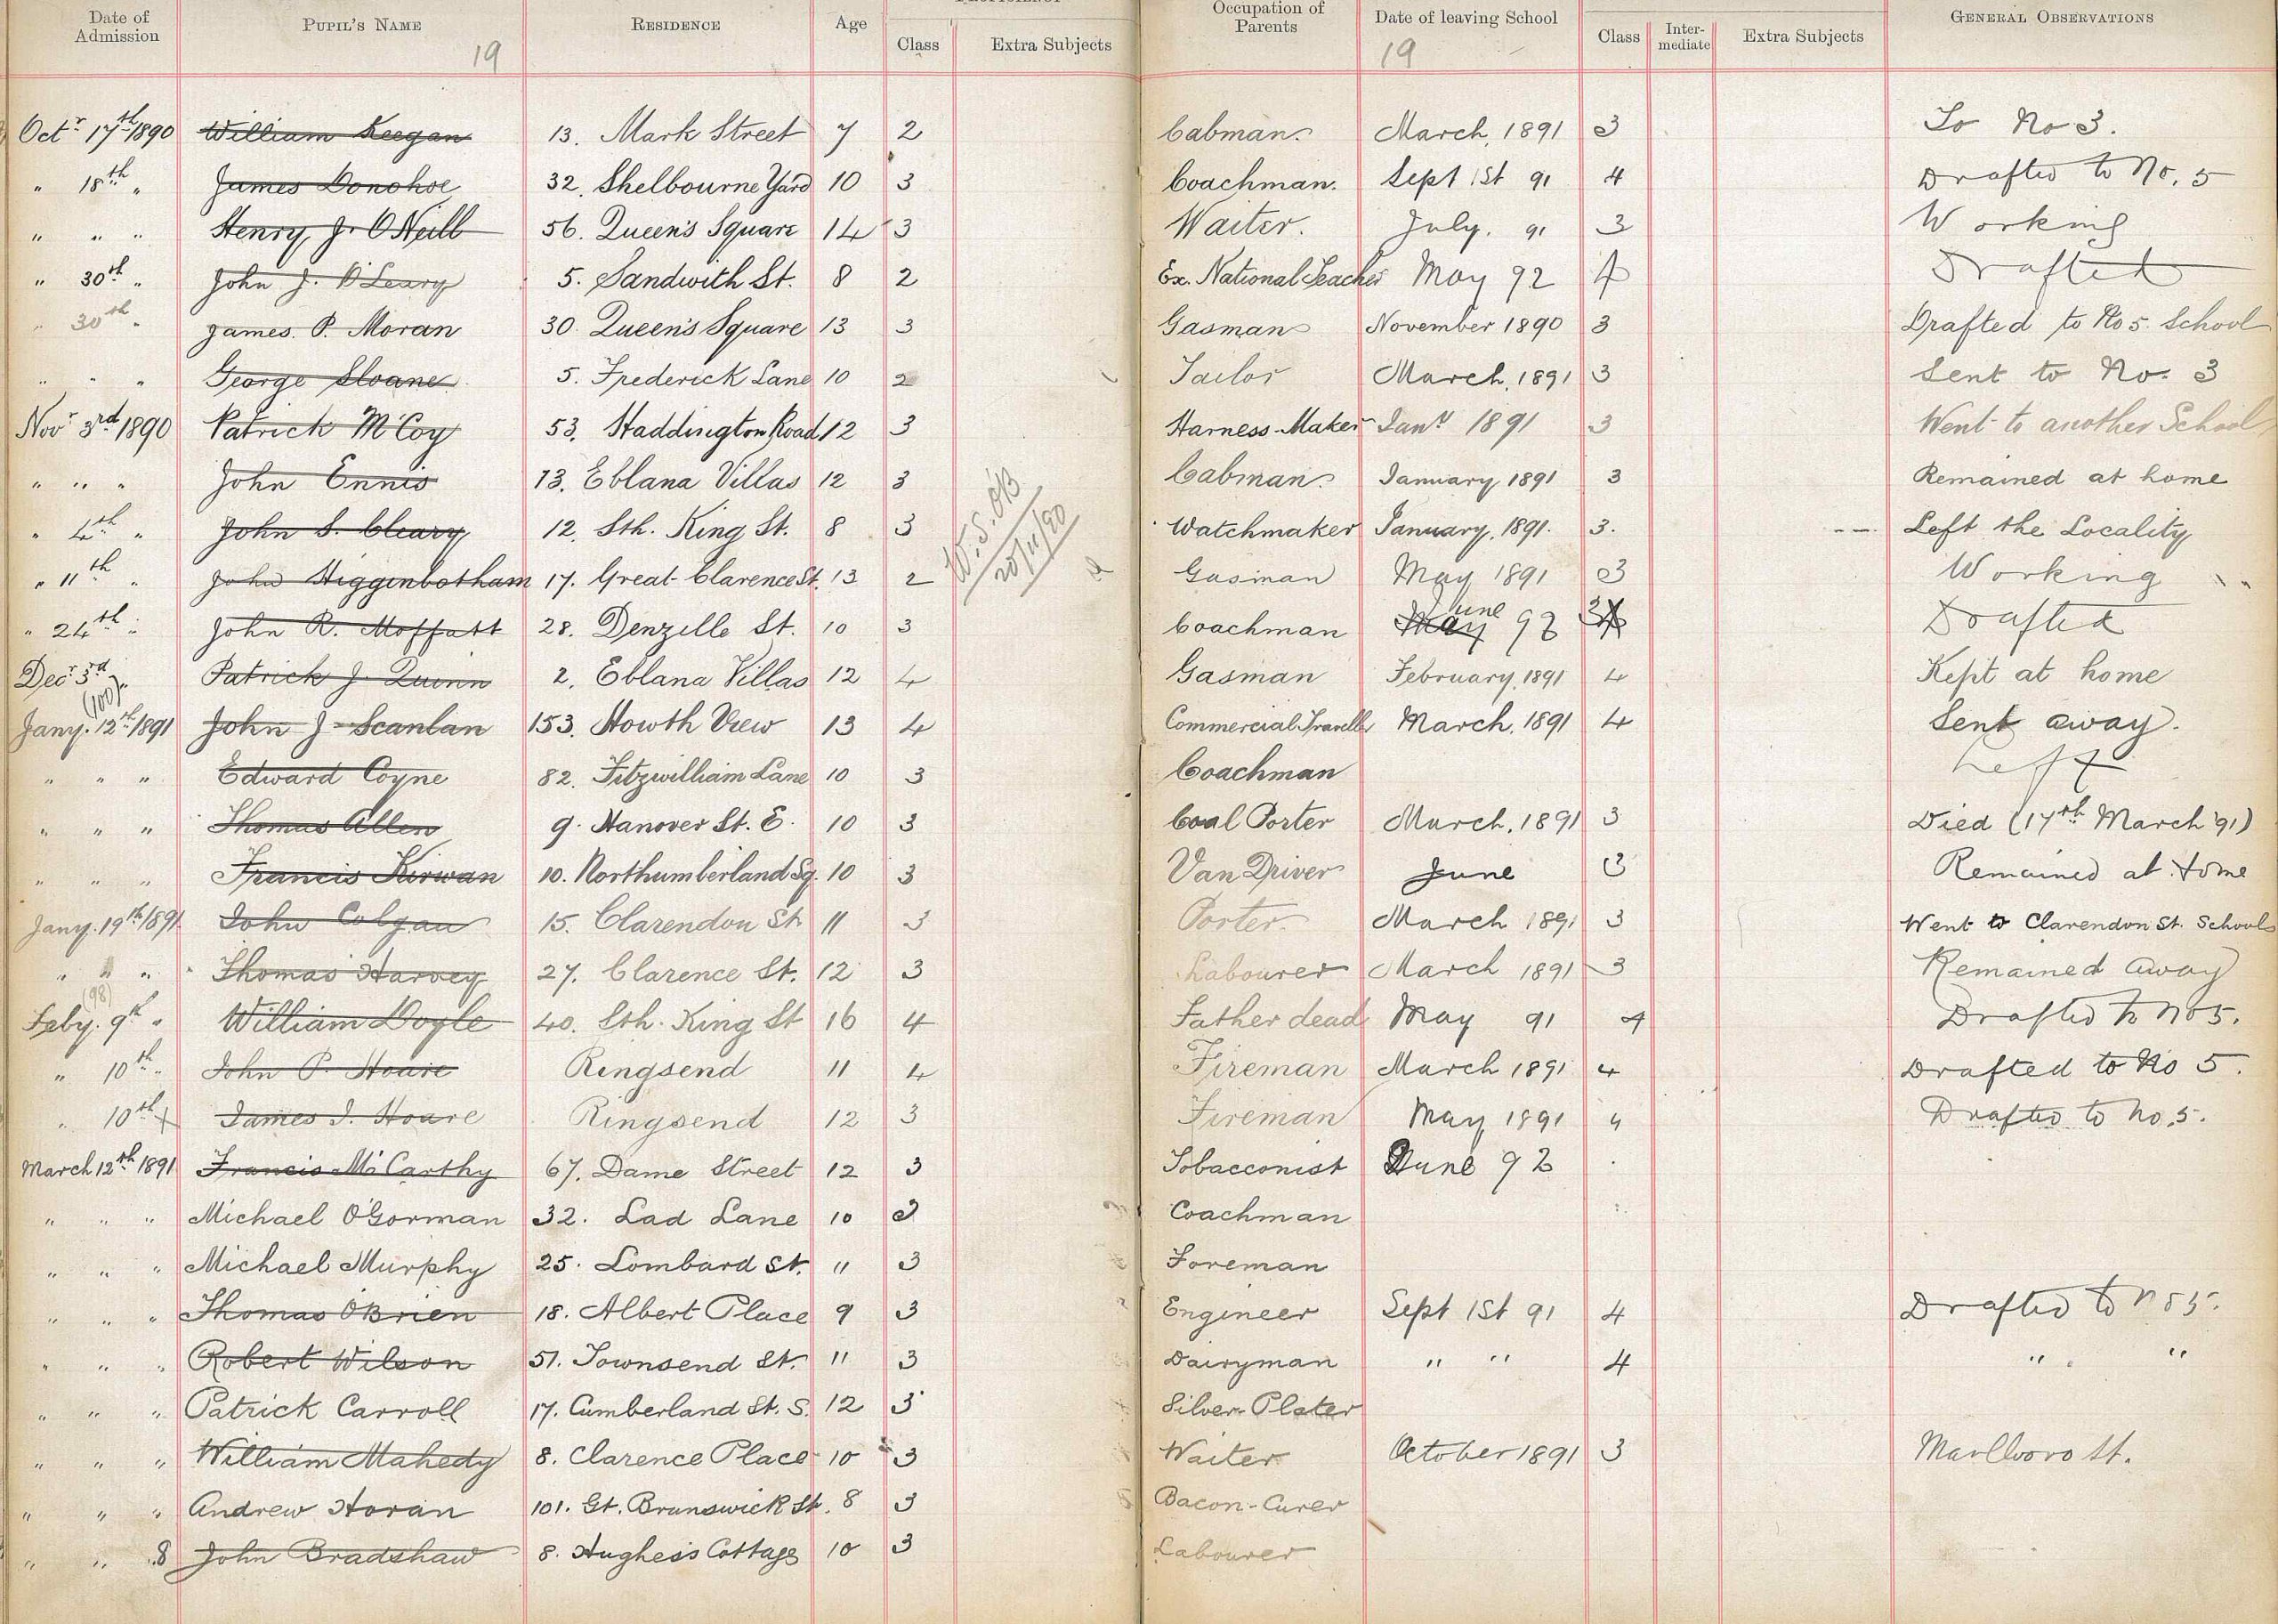 Date of Admission PUPIL'S NAME RESIDENCE Age Class Extra Subjects Occupation of Parents Date of leaving School Class Inter-mediate Extra Subjects GENERAL OBSERVATIONS
19 19
Octr 17th 1890 William Keegan 13. Mark Street 7 2 Cabman. March, 1891 3 To No 3.
" 18th " James Donohoe 32. Shelbourne Yard 10 3 Coachman. Sept 1st 91 4 Drafted to No. 5
" " " Henry J. O'Neill 56. Queen's Square 14 3 Waiter. July. 91 3 Working
" 30th " John J. O'Leary 5. Sandwith St. 8 2 Ex. National Teacher May 92 4 Drafted
" 30th " James P. Moran 30. Queen's Square 13 3 Gasman November 1890 3 Drafted to No 5. School
" " " George Sloane 5. Frederick Lane 10 2 Tailor March, 1891 3 Sent to No. 3
Novr 3rd 1890 Patrick McCoy 53. Haddington Road 12 3 Harness-Maker Jany 1891 3 Went to another School
" " " John Ennis 13. Eblana Villas 12 3 Cabman. January 1891 3 Remained at home
" 4th " John S. Cleary 12. Sth. King St. 8 3 Watchmaker January, 1891. 3. Left the Locality
" 11th " John Higginbotham 17. Great Clarence St. 13 2 W.S.O'B 20/11/90 Gasman May 1891 3 Working
" 24th " John R. Moffatt 28. Denzille St. 10 3 Coachman May June 92 3 4 Drafted
Decr 3rd " Patrick J. Quinn 2. Eblana Villas 12 4 Gasman February, 1891 4 Kept at home
(100)
Jany. 12th 1891 John J Scanlan 153. Howth View 13 4 Commercial Traveller March, 1891 4 Sent away.
" " " Edward Coyne 82. Fitzwilliam Lane 10 3 Coachman Left
" " " Thomas Allen 9. Hanover St. E. 10 3 Coal Porter March, 1891 3 Died (17th March '91)
" " " Francis Kirwan 10. Northumberland Sq. 10 3 Van Driver June 3 Remained at Home
Jany. 19th 1891 John Colgan 15. Clarendon St 11 3 Porter. March 1891 3 Went to Clarendon St. Schools
" " " Thomas Harvey 27. Clarence St. 12 3 Labourer March 1891 3 Remained away
(98)
Feby. 9th " William Doyle 40. Sth. King St 16 4 Father dead May 91 4 Drafted to No 5.
" 10th " John P. Hoare Ringsend 11 4 Fireman March 1891 4 Drafted to No 5.
" 10th James J. Hoare Ringsend 12 3 Fireman May 1891 4 Drafted to No. 5.
March 12th 1891 Francis McCarthy 67. Dame Street 12 3 Tobacconist June 92
" " " Michael O'Gorman 32. Lad Lane 10 3 Coachman
" " " Michael Murphy 25. Lombard St. 11 3 Foreman
" " " Thomas O'Brien 18. Albert Place 9 3 Engineer Sept 1st 91 4 Drafted to No 5.
" " " Robert Wilson 51. Townsend St. 11 3 Dairyman " " 4 " "
" " " Patrick Carroll 17. Cumberland St. S. 12 3 Silver-Plater
" " " William Mahedy 8. Clarence Place 10 3 Waiter October 1891 3 Marlboro St.
" " " Andrew Horan 101. Gt. Brunswick St. 8 3 Bacon-Curer
" " 8 John Bradshaw 8. Hughes's Cottage 10 3 Labourer